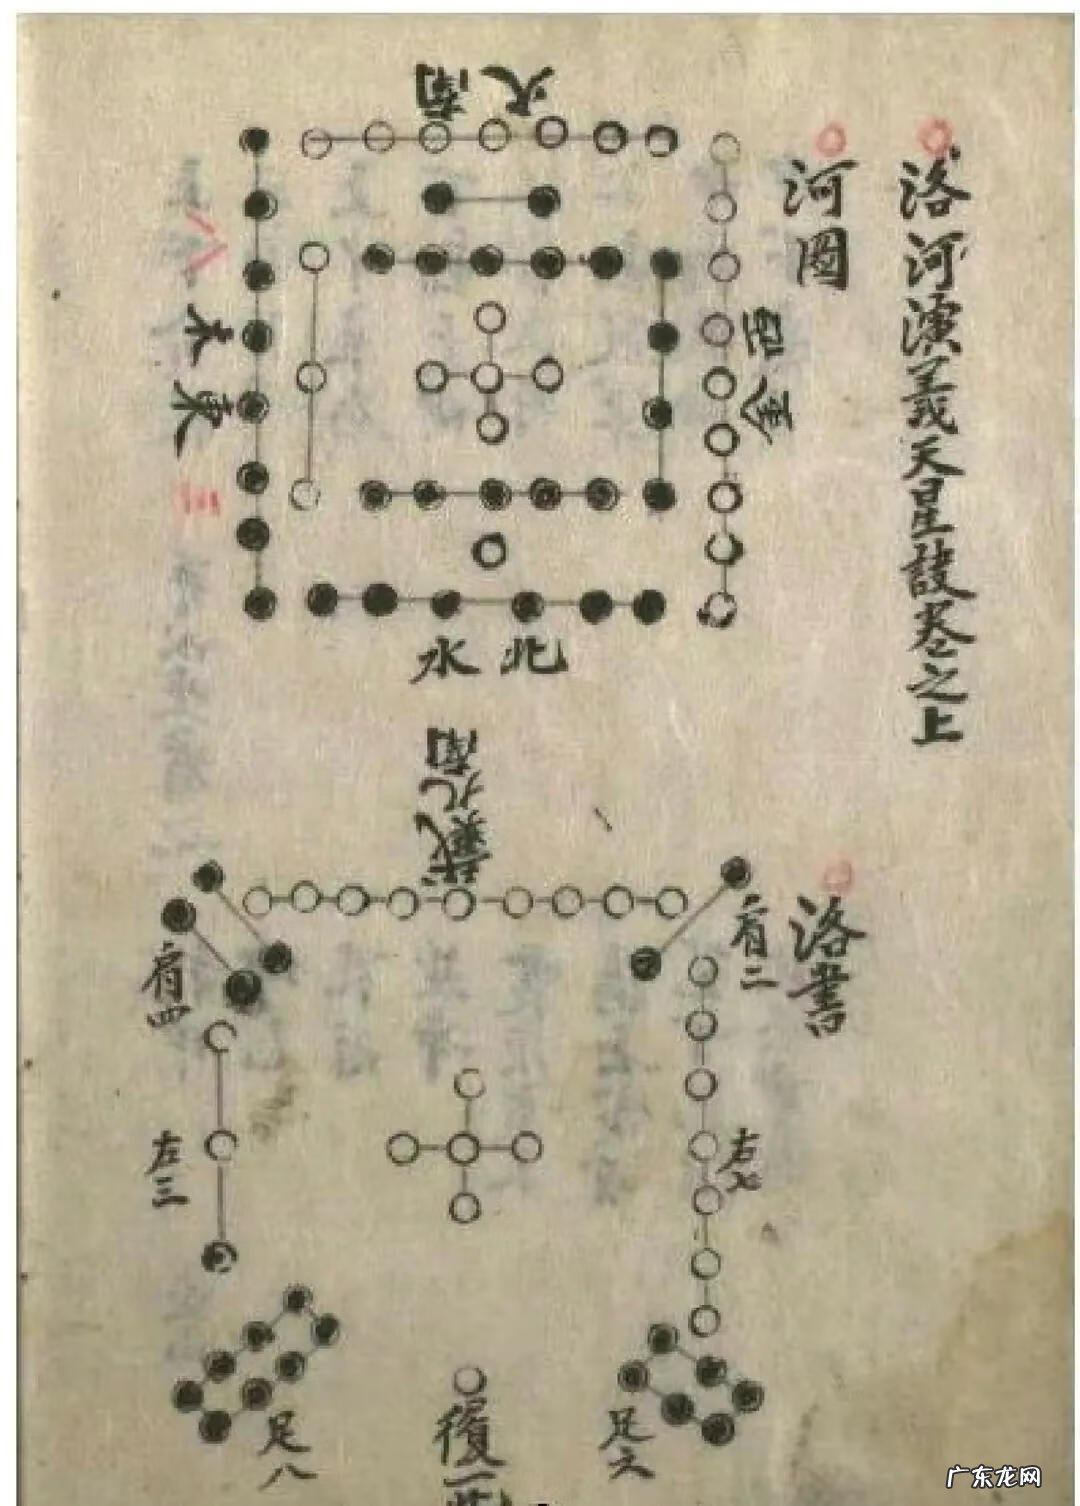 洛河演義天星訣卷之上
河圖
南火
西金
東木
北水
洛書
南
戴九
肩二
肩四
右七
左三
足六
足八
履一
北
广东龙网